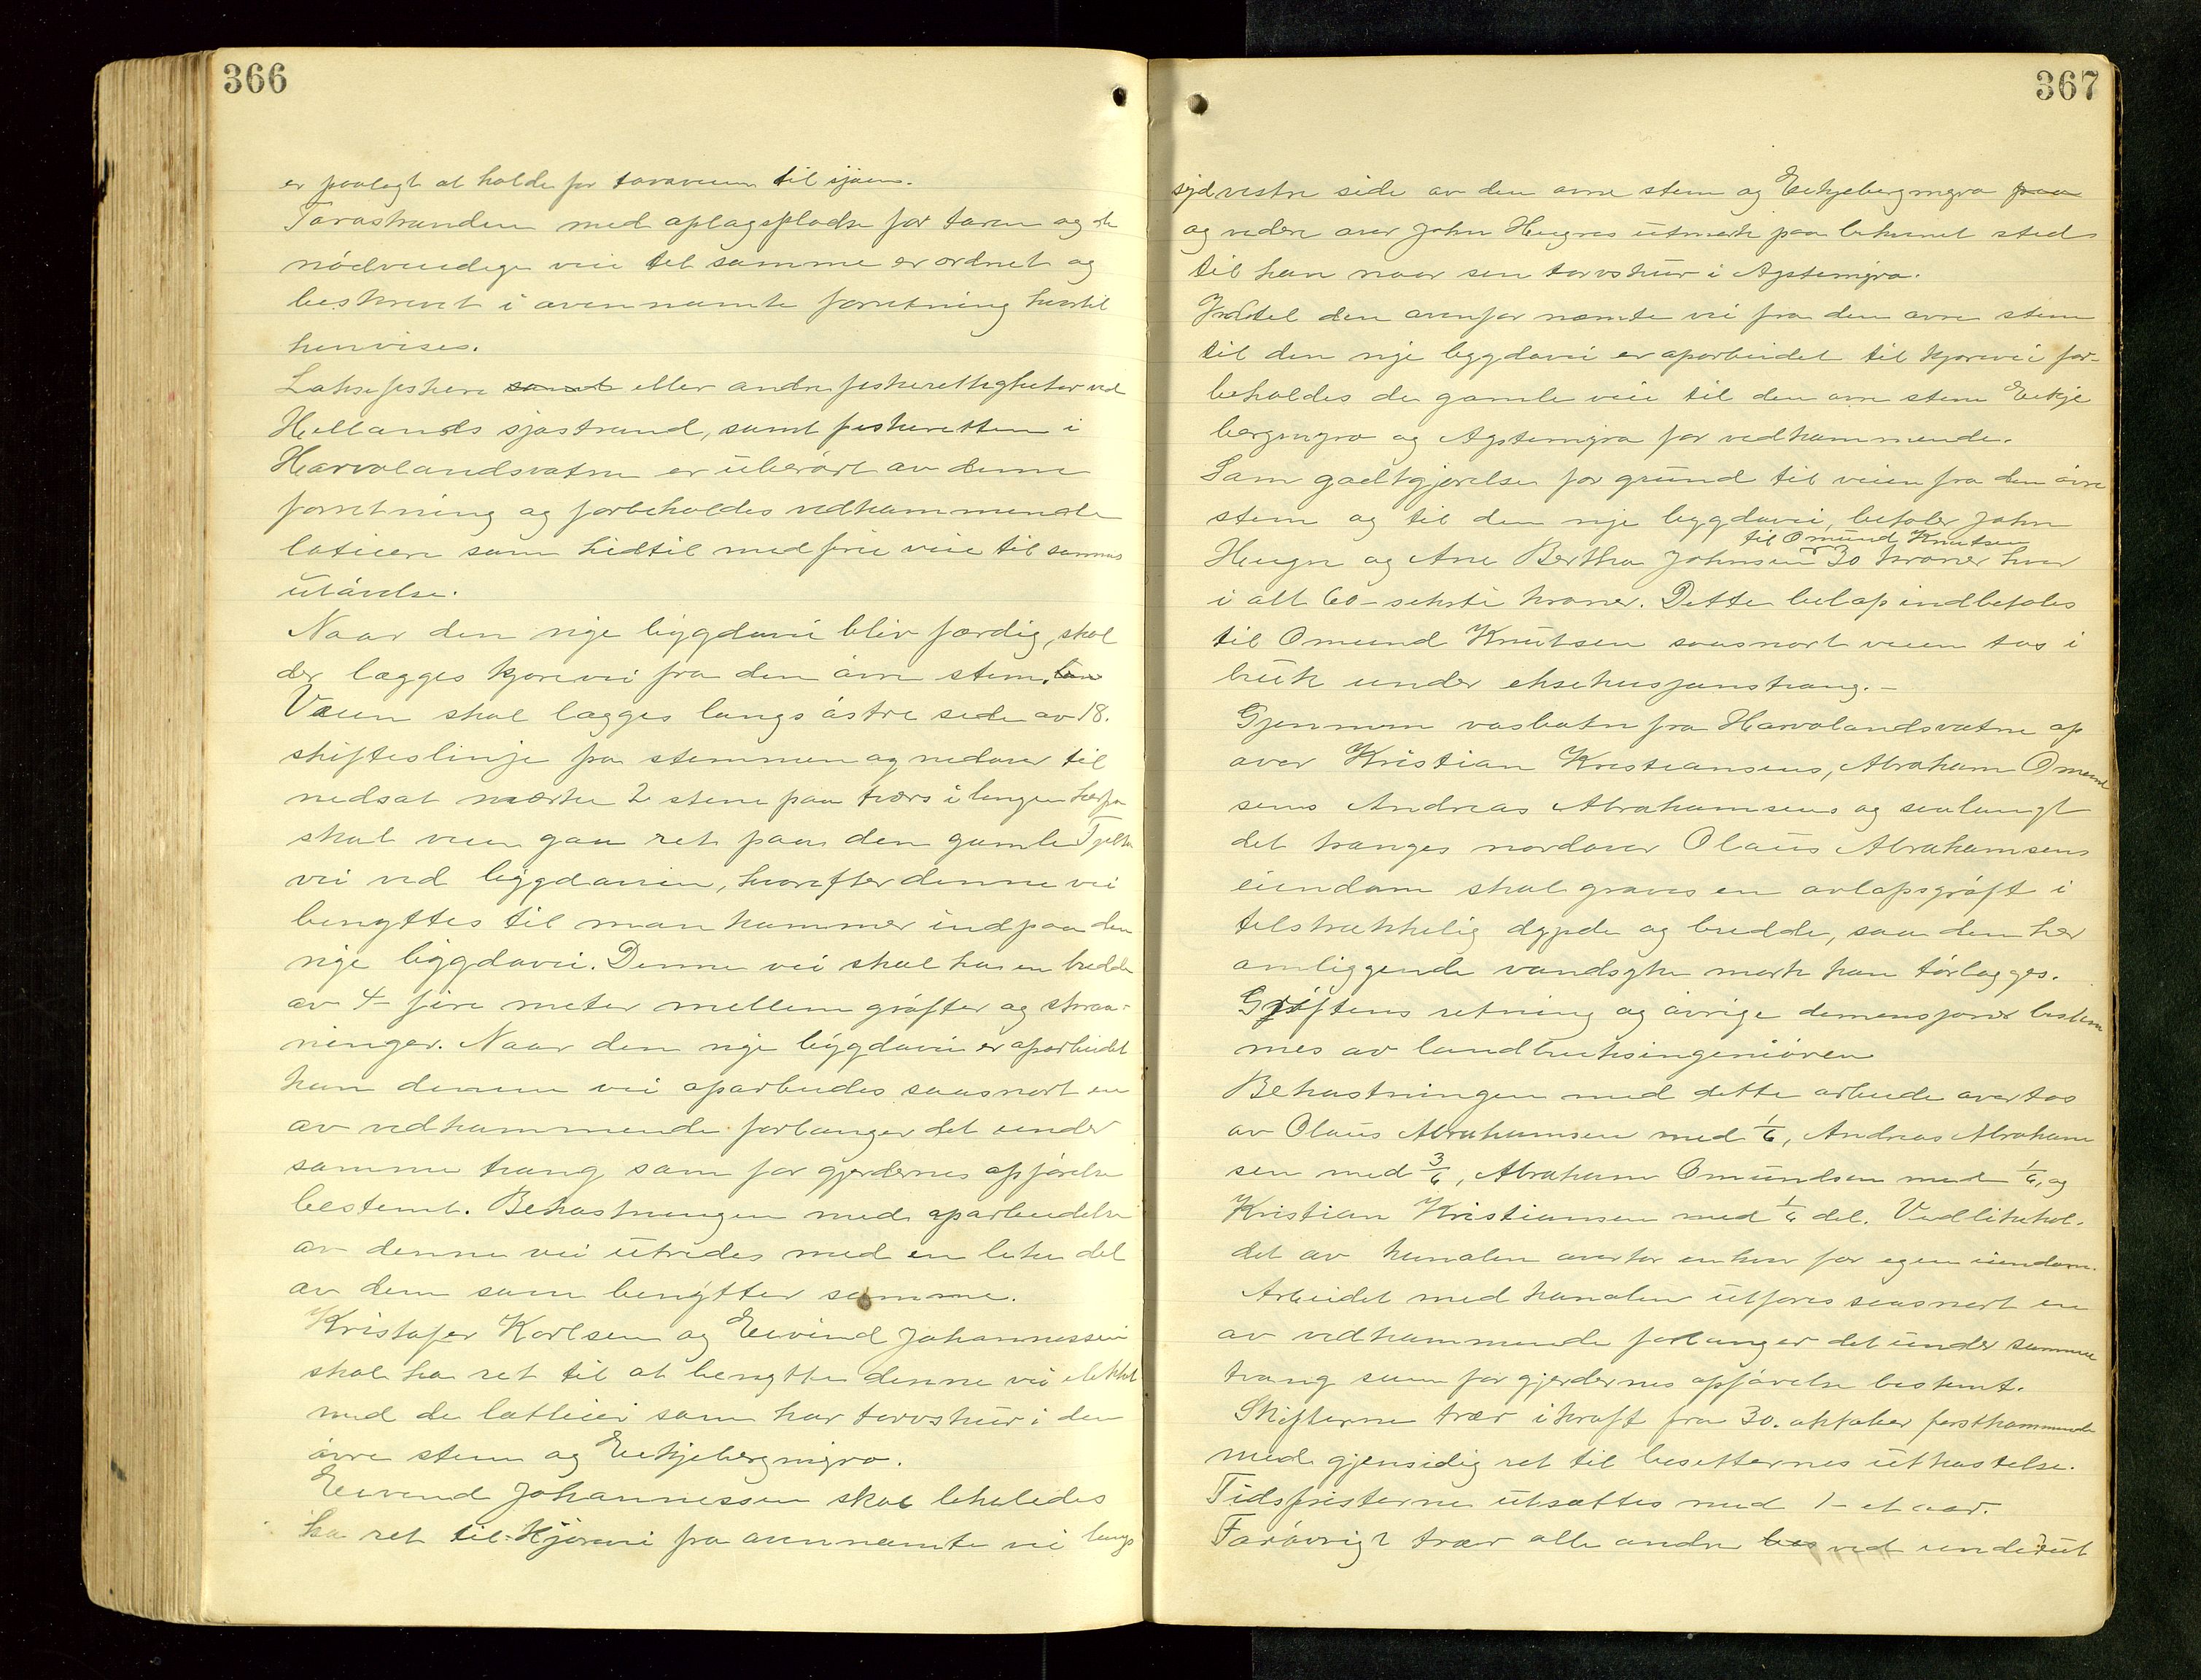 366
er paalagt at holde for taraveien til sjøen.
Tarastranden med oplagspladse for taren og de
nödvendige veie tel samme er ordnet og
beskrevet i ovennamte forretning hvortil
henvises.
Laksefiskeri samt eller andre fiskerettigheter ved
Hellands sjøstrand, samt fiskeretten i
Harvalandsvatne er uberört av denne
forretning og forbeholdes vedkommende
lotieiere som hidtil med frie veie til sammes
utövelse.
Naar den nye bygdavei bliv færdig, skal
der lægges kjorevei fra den övre stem.
Veien skal lægges langs östre side av 18.
skifteslinje fra stemmen og nedover til
nedsat mærke 2 stene paa tvers i lengen herfra
skal veien gaa ret paa den gamle
vei ved bygdaveien, hvorefter denne vei
benyttes til man kommer ind paa den
nye bygdavei. Denne vei skal ha en bredde
av 4- fire meter mellem gröfter og skraa-
ninger. Naar den nye bygdavei er oparbeidet
kan denne vei oparbeides saasnart en
av vedkommende forlanger det under
samme tvang som for gjerdernes opförelse
bestemt. Bekostningen med oparbeidelse
av denne vei utredes med en like del
av dem som benytter samme.
Kristofer Karlsen og Eivind Johannessen
skal ha ret til at benytte denne vei likt
med de lottieier som har torvskur i den
övre stem og Eikjebergmyra.
Eivend Johannessen skal beholdes
ha ret til Kjörevei fra ovennemte vei langs
367
sydvestre side av den ovre stem og Eikjebergmyra paa
og videre over John Heigres utmark paa bekvemt sted
til han naar sin torvskur i Agstemyra.
Indtel den ovenfor nemte vei fra den ovre stem
til den nye bygdavei er oparbeidet til kjorevei for-
beholdes de gamle veie til den ovre stem Eikje
bergmyra og Agstemyra for vedkommende.
Som godtgjorelse for grund til veien fra den övre
stem og til den nye bygdavei, betaler John
til Omund Knutsen
Heigre og Ane Bertha Johnsen 30 kroner hver
i alt 60- seksti kroner. Dette belop indbetales
til Omund Knutsen saasnart veien tas i
bruk under eksekusjonstvang.-
Gjennem vasbotn fra Harvalandsvatne op
over Kristian Kristiansens, Abraham Omund
sens Andreas Abrahamsens og saalangt
det trenges nordover Olaus Abrahamsens
eiendom skal graves en avlopsgröft i
telstrækkelig dypde og bredde, saa den her
omliggende vandsyke mark kan törlegges.
Gröftens retning og övrige demensjoner bestem
mes av landbruksingeniören
Bekostningen med dette arbeide overtas
av Olaus Abrahamsen med 1/6, Andreas Abraham
sen med 3/6, Abraham Omundsen med 1/6, og
Kristian Kristiansen med 1/6 del. Vedlikehol-
det av kanalen overtar enhver for egen eiendom.
Arbeidet med kanalen utföres saasnart en
av vedkommende forlanger det under samme
tvang som for gjerdernes opförelse bestemt.
Skifterne trær i kraft fra 30. oktober forstkommende
med gjensidig ret til besetternes utkastelse.
Tidsfristerne utsættes med 1- et aar.
Forövrigt trær alle andre bes ved under ut